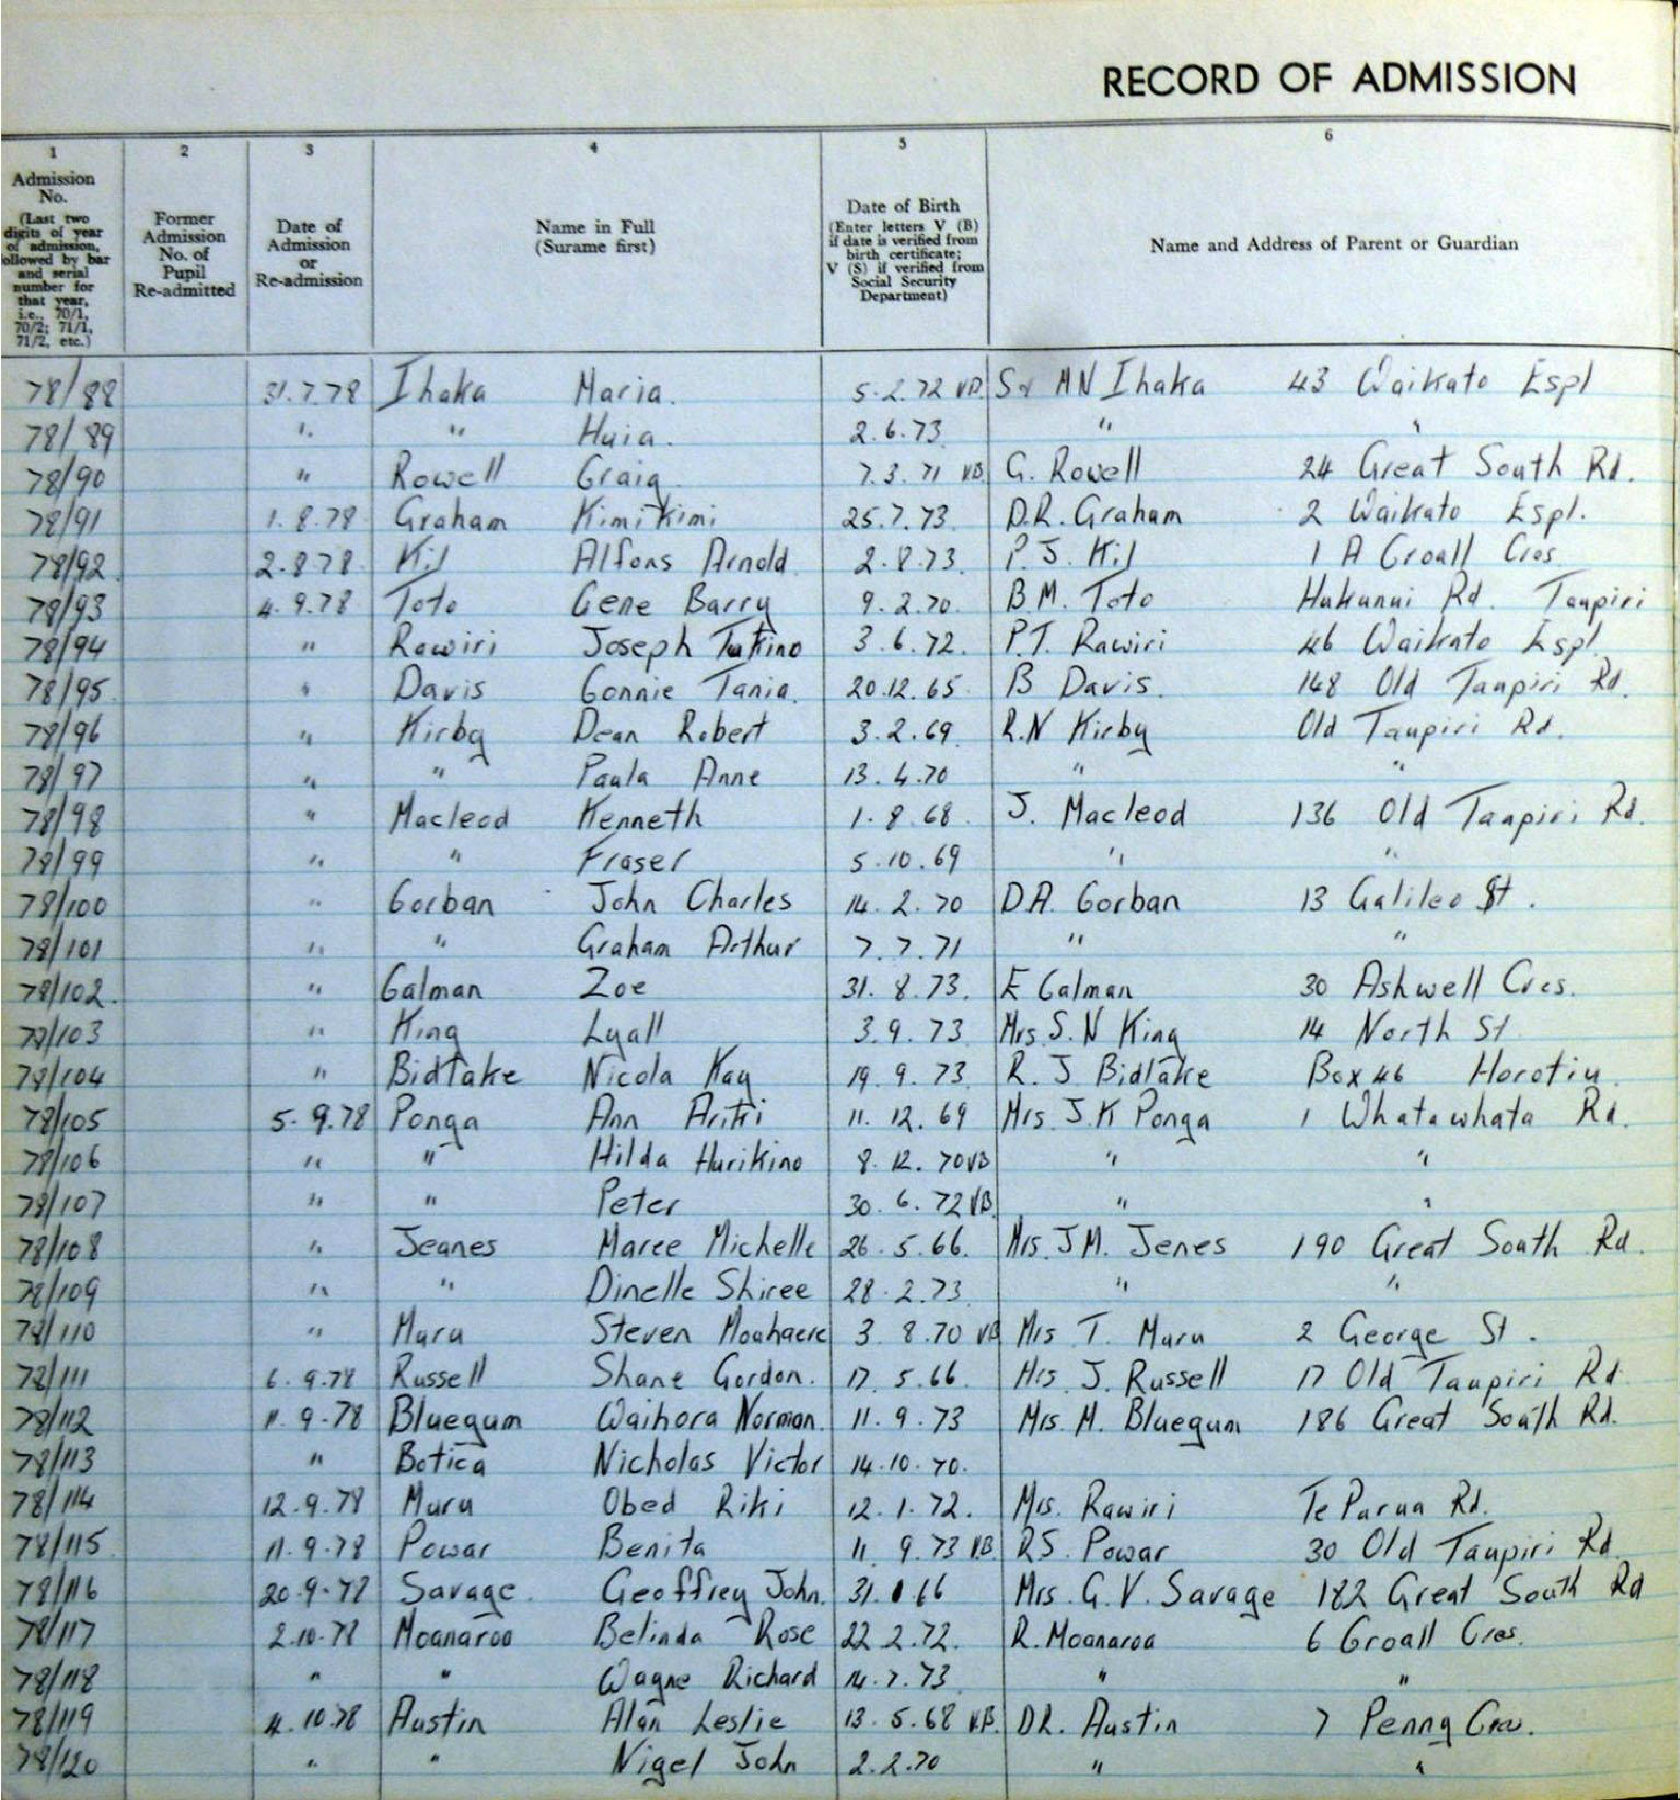 RECORD OF ADMISSION
1 2 3 4 5 6
Admission No. (Last two digits of year of admission, ollowed by bar and serial number for that year, i.e., 70/1, 70/2; 71/1, 71/2, etc.)
Former Admission No. of Pupil Re-admitted
Date of Admission or Re-admission
Name in Full (Surame first)
Date of Birth (Enter letters V (B) if date is verified from birth certificate; V (S) if verified from Social Security Department)
Name and Address of Parent or Guardian
78/88 31.7.78 Ihaka Maria. 5.2.72 VB. S & MN Ihaka 43 Waikato Espl
78/89 " " Huia. 2.6.73 " "
78/90 " Rowell Craig 7.3.71 VB. G. Rowell 24 Great South Rd.
78/91 1.8.78 Graham Kimikimi 25.7.73 D.R. Graham 2 Waikato Espl.
78/92. 2.8.78 Kil Alfons Arnold. 2.8.73. P.J. Kil 1 A Croall Cres.
78/93 4.9.78 Toto Gene Barry 9.2.70. B.M. Toto Hukanui Rd. Taupiri
78/94 " Rawiri Joseph Tukino 3.6.72. P.T. Rawiri 46 Waikato Espl.
78/95. " Davis Connie Tania. 20.12.65. B Davis. 148 Old Taupiri Rd.
78/96 " Kirby Dean Robert 3.2.69. R.N Kirby Old Taupiri Rd.
78/97 " " Paula Anne 13.4.70 " "
78/98 " Macleod Kenneth 1.8.68. J. Macleod 136 Old Taupiri Rd.
78/99 " " Fraser 5.10.69 " "
78/100 " Corban John Charles 14.2.70 D.A. Corban 13 Galileo St.
78/101 " " Graham Arthur 7.7.71 " "
78/102. " Calman Zoe 31.8.73. E Calman 30 Ashwell Cres.
78/103 " King Lyall 3.9.73 Mrs. S.N King 14 North St
78/104 " Bidlake Nicola Kay 19.9.73 R.J Bidlake Box 46 Horotiu
78/105 5.9.78 Ponga Ann Aritri 11.12.69 Mrs. J.K Ponga 1 Whatawhata Rd.
78/106 " " Hilda Hurikino 8.12.70 VB " "
78/107 " " Peter 30.6.72 VB. " "
78/108 " Jeanes Maree Michelle 26.5.66. Mrs. J.M. Jenes 190 Great South Rd.
78/109 " " Dinelle Shiree 28.2.73. " "
78/110 " Muru Steven 3.8.70 VB Mrs T. Muru 2 George St.
78/111 6.9.78 Russell Shane Gordon. 17.5.66. Mrs. J. Russell 17 Old Taupiri Rd
78/112 11.9.78 Bluegum Waihora Norman. 11.9.73 Mrs. M. Bluegum 186 Great South Rd.
78/113 " Botica Nicholas Victor 14.10.70.
78/114 12.9.78 Muru Obed Riki 12.1.72. Mrs. Rawiri Te Parua Rd.
78/115. 11.9.78 Powar Benita 11.9.73 VB. R.S. Powar 30 Old Taupiri Rd
78/116 20.9.78 Savage. Geoffrey John. 31.1.66 Mrs. G.V. Savage 182 Great South Rd
78/117 2.10.78 Moanaroa Belinda Rose 22.2.72. R. Moanaroa 6 Croall Cres.
78/118 " " Wayne Richard 14.7.73 " "
78/119 4.10.78 Austin Alan Leslie 13.5.68 VB. D.R. Austin 7 Penny Cres.
78/120 " " Nigel John 2.2.70 " "